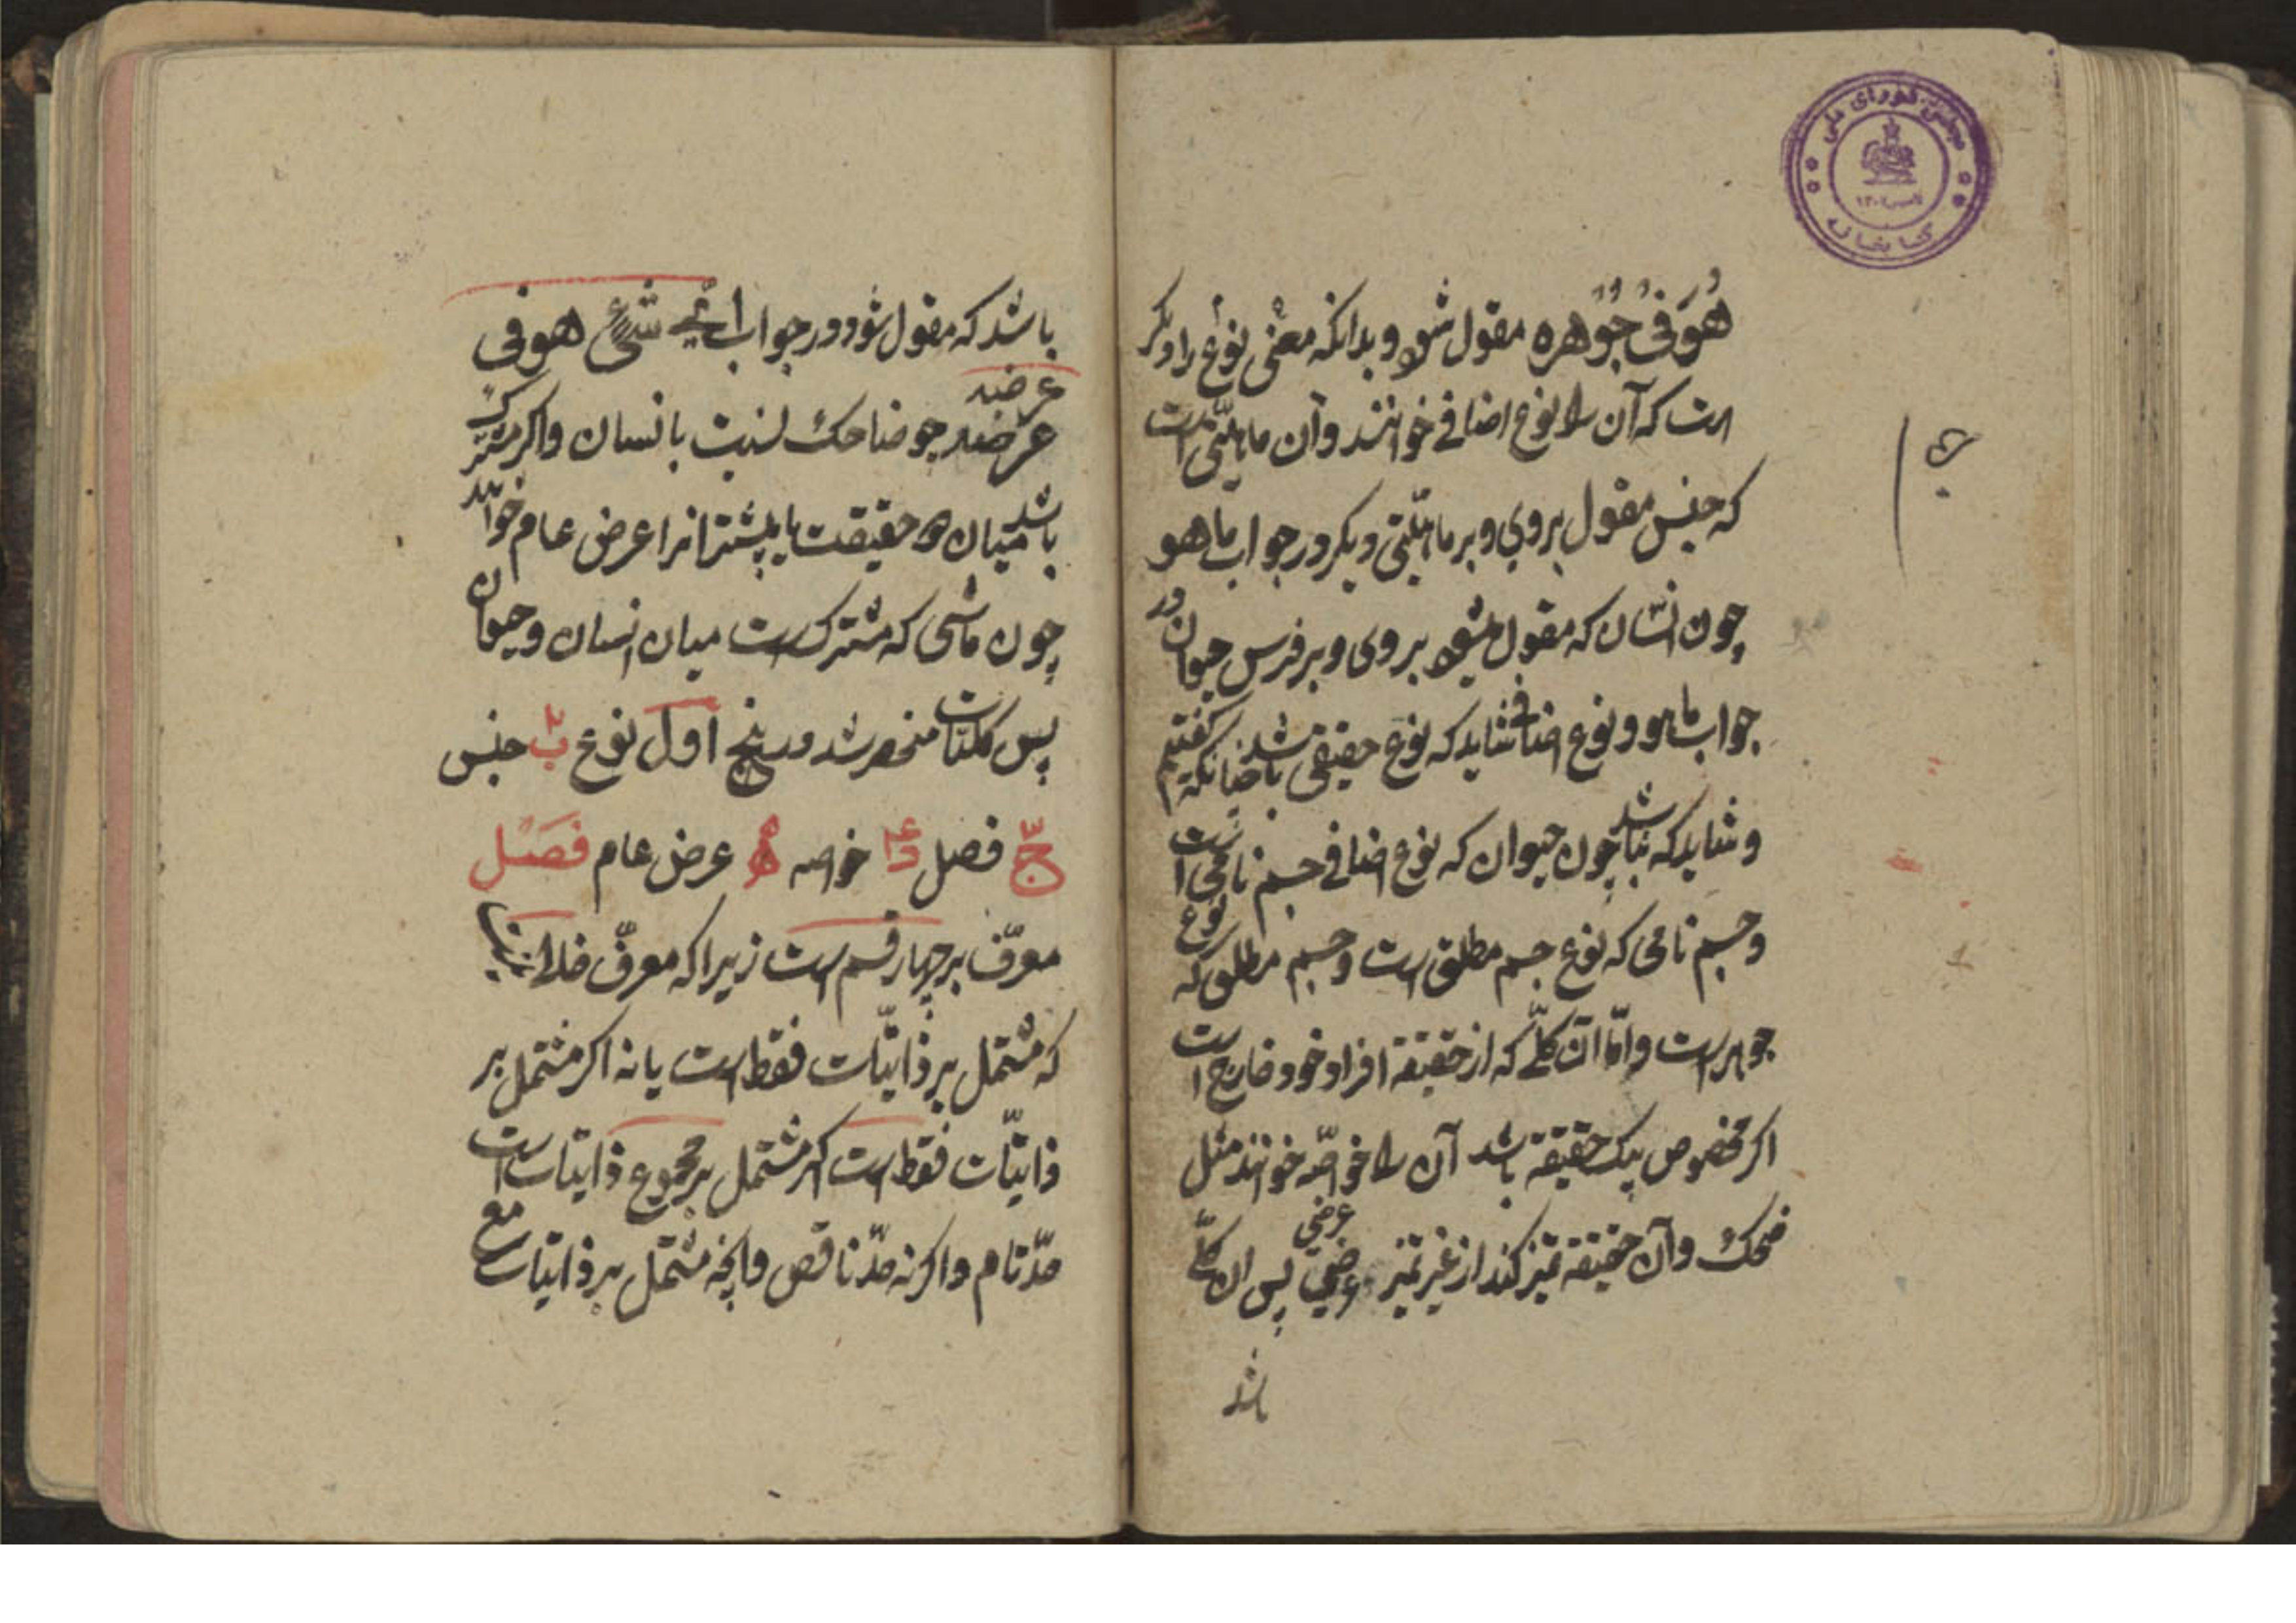 مجلس شورای ملی
کتابخانه
هُوَ فی جُوُهره مقول شود و بدانکه معنی نوع را دیکر
است که آن را نوع اضافی خوانند و آن ماهیّتی است
که جنس مقول بروی و بر ماهیّتی دیکر در جواب ما هو
چون انسان که مقول میشود بروی و بر فرس حیوان در
جواب ما هو و نوع اضافی شاید که نوع حقیقی باشد چنانکه کفتیم
و شاید که نباشد چون حیوان که نوع اضافی جسم نامی است
و جسم نامی که نوع جسم مطلق است و جسم مطلق که نوع
جوهر است و امّا آن کلّے که از حقیقة افراد خود خارج است
اکر مخصوص بیک حقیقة باشد آن را خواصّه خوانند مثل
ضحک و آن حقیقة تمیز کند از غیر تمیز عرضی پس ان کلّے
عرضی
باشد
باشد که مقول شود در جواب ائ شیء هو فی
عرضه
عرضه چو ضاحک نسبت بانسان و اکر مشترک
باشد میان دو حقیقت یا بیشتر انرا عرض عام خوانند
چون ماشی که مشترک است میان انسان و حیوان
پس کلیّات منحصر شد در پنج اول نوع ب جنس
ج فصل د خواصه ه عرض عام فَصَل
معرّف بر چهار قسم است زیرا که معرّف خالی از ان نیست
که مشتمل بر ذاتیّات فقط است یا نه اکر مشتمل بر
ذاتیّات فقط است اکر مشتمل بر مجموع ذاتیات است
حدّ تام و اکر نه حدّ ناقص و انچه مشتمل بر ذاتیات مع